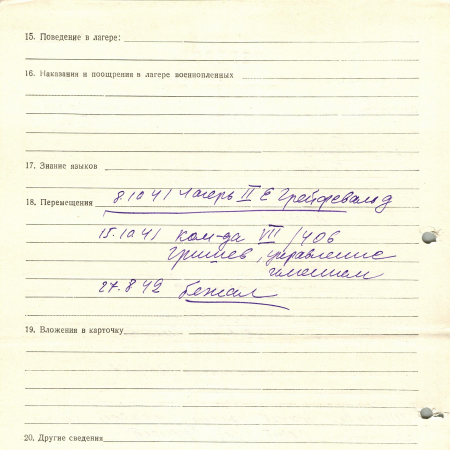 15. Поведение в лагере:
16. Наказания и поощрения в лагере военнопленных
17. Знание языков
18. Перемещения 8.10 41 лагерь II E Грейфсвальд
15.10 41 ком-да VIII/406
Гришев, управление
имением
27.8 42 бежал
19. Вложения в карточку
20. Другие сведения